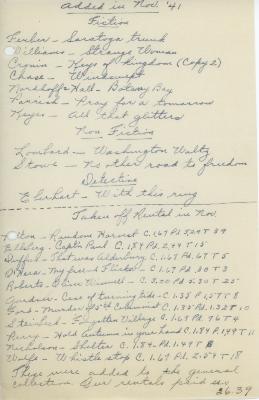 Added in Nov. '41
Fiction
Ferber - Saratoga trunk
Williams - Strange Woman
Cronin - Keys of kingdom (Copy 2)
Chase - Windswept
Nordhoff & Hall - Botany Bay
Farrish - Pray for a tomorrow
Keyes - All that glitters
Non Fiction
Lombard - Washington Waltz
Stowe - No other road to freedom
Detective
Eberhart - With this ring
Taken off Rental in Nov.
Hilton - Random Harvest C. 1.67 Pd.
Ellsberg - Capt'n Paul C. 1.84 Pd. 2.44 T 15
Duffus - That was Alderbury C. 1.67 Pd. .67 T 5
O'Hara - My friend Flicka - C. 1.67 Pd. .80 T 3
Roberts - Oliver Wiswell - C. 2.00 5.30 T 25
Gardner - Case of turning tide - C. 1.35 P 1.57 T 8
Ford - Murder of 5th Columnist C. 1.35 Pd. 1.32 T 10
Steinbeck - Forgotten Village C. 1.67 Pd. .96 T 4
Perry - Hold autumn in your hand C. 1.84 P. 1.49 T 11
Nicholson - Shelter C. 1.84 - Pd. 1.49 T 8
Wolfe - Whistle stop C 1.67 Pd. 2.59 T 18
These were added to the general
collection. Our rentals paid us
26.39